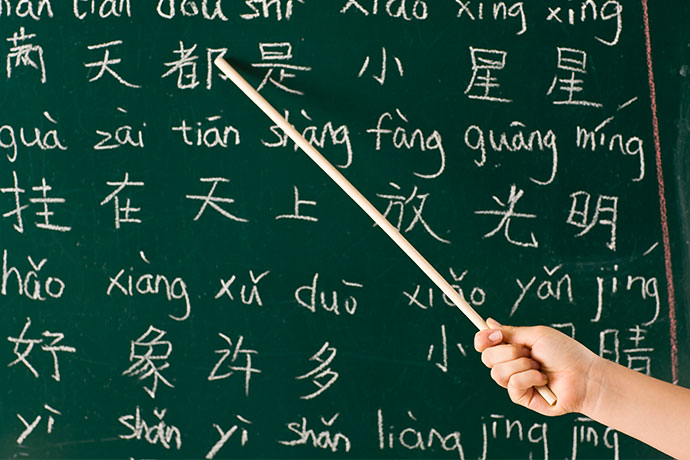 tian dou shi xiao xing xing
满 天 都 是 小 星 星
guà zài tiān shàng fàng guāng míng
挂 在 天 上 放 光 明
hǎo xiàng xǔ duō xiǎo yǎn jīng
好 象 许 多 小 睛
yì shǎn yì shǎn liàng jīng jīng